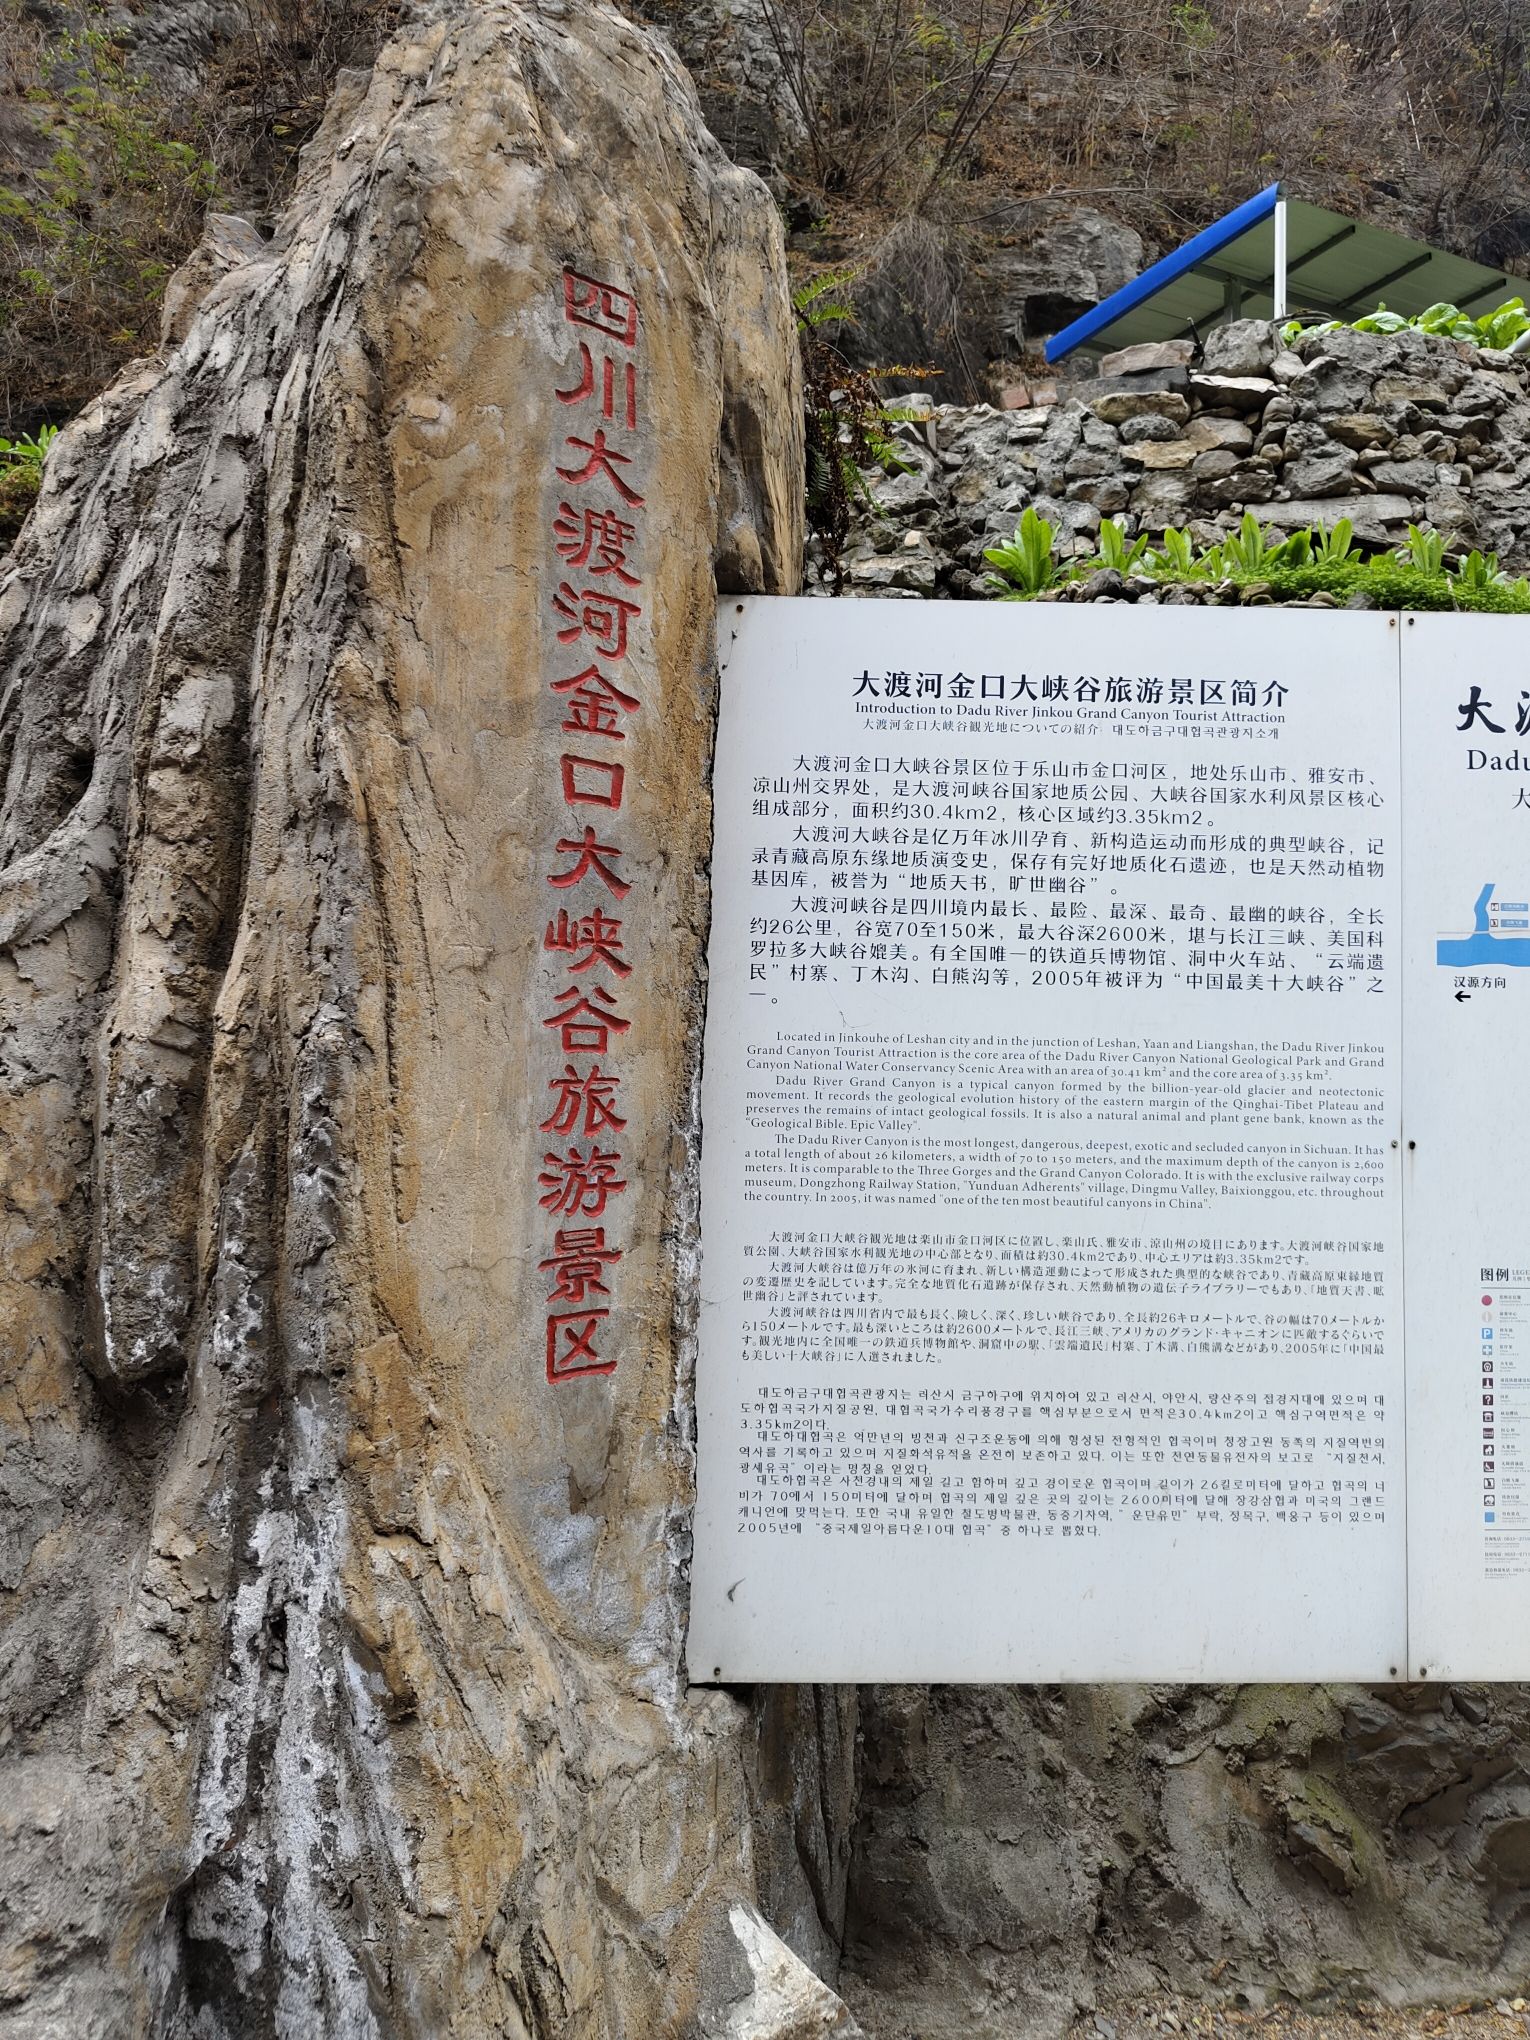 四川大渡河金口大峡谷旅游景区
大渡河金口大峡谷旅游景区简介
Introduction to Dadu River Jinkou Grand Canyon Tourist Attraction
大渡河金口大峡谷観光地についての紹介 대도하금구대협곡관광지소개
大渡河金口大峡谷景区位于乐山市金口河区，地处乐山市、雅安市、
凉山州交界处，是大渡河峡谷国家地质公园、大峡谷国家水利风景区核心
组成部分，面积约30.4km2，核心区域约3.35km2。
大渡河大峡谷是亿万年冰川孕育、新构造运动而形成的典型峡谷，记
录青藏高原东缘地质演变史，保存有完好地质化石遗迹，也是天然动植物
基因库，被誉为“地质天书，旷世幽谷”。
大渡河峡谷是四川境内最长、最险、最深、最奇、最幽的峡谷，全长
约26公里，谷宽70至150米，最大谷深2600米，堪与长江三峡、美国科
罗拉多大峡谷媲美。有全国唯一的铁道兵博物馆、洞中火车站、“云端遗
民”村寨、丁木沟、白熊沟等，2005年被评为“中国最美十大峡谷”之
一。
Located in Jinkouhe of Leshan city and in the junction of Leshan, Yaan and Liangshan, the Dadu River Jinkou
Grand Canyon Tourist Attraction is the core area of the Dadu River Canyon National Geological Park and Grand
Canyon National Water Conservancy Scenic Area with an area of 30.41 km² and the core area of 3.35 km².
Dadu River Grand Canyon is a typical canyon formed by the billion-year-old glacier and neotectonic
movement. It records the geological evolution history of the eastern margin of the Qinghai-Tibet Plateau and
preserves the remains of intact geological fossils. It is also a natural animal and plant gene bank, known as the
"Geological Bible. Epic Valley".
The Dadu River Canyon is the most longest, dangerous, deepest, exotic and secluded canyon in Sichuan. It has
a total length of about 26 kilometers, a width of 70 to 150 meters, and the maximum depth of the canyon is 2,600
meters. It is comparable to the Three Gorges and the Grand Canyon Colorado. It is with the exclusive railway corps
museum, Dongzhong Railway Station, "Yunduan Adherents" village, Dingmu Valley, Baixionggou, etc. throughout
the country. In 2005, it was named "one of the ten most beautiful canyons in China".
大渡河金口大峡谷観光地は楽山市金口河区に位置し、楽山氏、雅安市、涼山州の境目にあります。大渡河峡谷国家地
質公園、大峡谷国家水利観光地の中心部となり、面積は約30.4km2であり、中心エリアは約3.35km2です。
大渡河大峡谷は億万年の氷河に育まれ、新しい構造運動によって形成された典型的な峡谷であり、青藏高原東縁地質
の変遷歴史を記しています。完全な地質化石遺跡が保存され、天然動植物の遺伝子ライブラリーでもあり、「地質天書、曠
世幽谷」と評されています。
大渡河峡谷は四川省内で最も長く、険しく、深く、珍しい峡谷であり、全長約26キロメートルで、谷の幅は70メートルか
ら150メートルです。最も深いところは約2600メートルで、長江三峡、アメリカのグランド・キャニオンに匹敵するぐらいで
す。観光地内に全国唯一の鉄道兵博物館や、洞窟中の駅、「雲端遺民」村寨、丁木溝、白熊溝などがあり、2005年に「中国最
も美しい十大峡谷」に人選されました。
대도하금구대협곡관광지는 러산시 금구하구에 위치하여 있고 러산시, 야안시, 량산주의 접경지대에 있으며 대
도하협곡국가지질공원, 대협곡국가수리풍경구를 핵심부분으로서 면적은30.4km2이고 핵심구역면적은 약
3.35km2이다.
대도하대협곡은 억만년의 빙천과 신구조운동에 의해 형성된 전형적인 협곡이며 청장고원 동쪽의 지질역변의
역사를 기록하고 있으며 지질화석유적을 온전히 보존하고 있다. 이는 또한 천연동물유전자의 보고로 “지질천서,
광세유곡”이라는 명칭을 얻었다.
대도하협곡은 사천경내의 제일 길고 험하며 깊고 경이로운 협곡이며 길이가 26킬로미터에 달하고 협곡의 너
비가 70에서 150미터에 달하며 협곡의 제일 깊은 곳의 깊이는 2600미터에 달해 장강삼협과 미국의 그랜드
캐니언에 맞먹는다. 또한 국내 유일한 철도병박물관, 동중기차역, ”운단유민”부락, 정목구, 백웅구 등이 있으며
2005년에 “중국제일아름다운10대 협곡”중 하나로 뽑혔다.
大
Dadu
大
汉源方向
图例